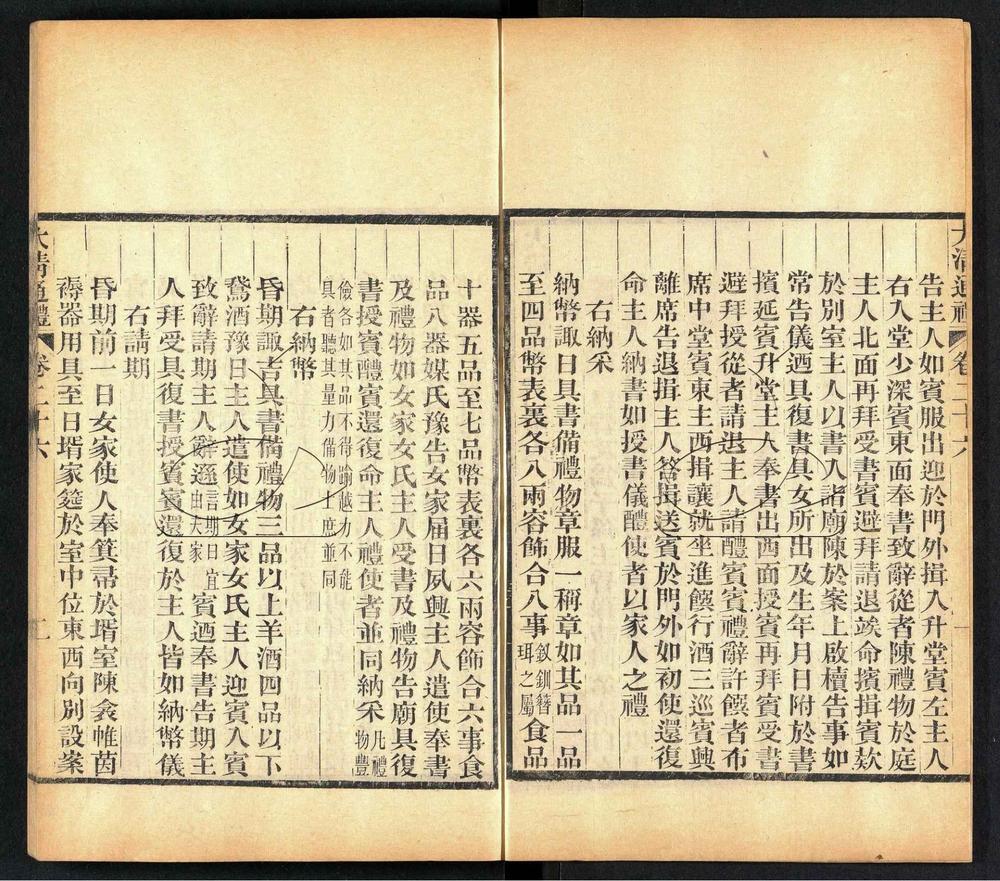 大清通禮 卷二十六
告主人如賓服出迎於門外揖入升堂賓左主人
右入堂少深賓東面奉書致辭從者陳禮物於庭
主人北面再拜受書賓避拜請退竢命擯揖賓欵
於別室主人以書入諸廟陳於案上啟櫝告事如
常告儀迺具復書具女所出及生年月日附於書
擯延賓升堂主人奉書出西面授賓再拜賓受書
避拜授從者請退主人請醴賓賓禮辭許饌者布
席中堂賓東主西揖讓就坐進饌行酒三巡賓興
離席告退揖主人荅揖送賓於門外如初使還復
命主人納書如授書儀醴使者以家人之禮
右納采
納幣諏日具書備禮物章服一稱章如其品一品
至四品幣表裏各八兩容飾合八事釵釧簪珥之屬食品
十器五品至七品幣表裏各六兩容飾合六事食
品八器媒氏豫告女家届日夙興主人遣使奉書
及禮物如女家女氏主人受書及禮物告廟具復
書授賓醴賓還復命主人禮使者並同納采凡禮物豐
儉各如其品不得踰越力不能
具者聽其量力備物士庶並同
右納幣
昏期諏吉具書備禮物三品以上羊酒四品以下
鵞酒豫日主人遣使如女家女氏主人迎賓入賓
致辭請期主人辭遜言期日宜由夫家賓迺奉書告期主
人拜受具復書授賓賓還復於主人皆如納幣儀
右請期
昏期前一日女家使人奉箕帚於壻室陳衾帷茵
褥器用具至日壻家筵於室中位東西向別設案
大清通禮 卷二十六